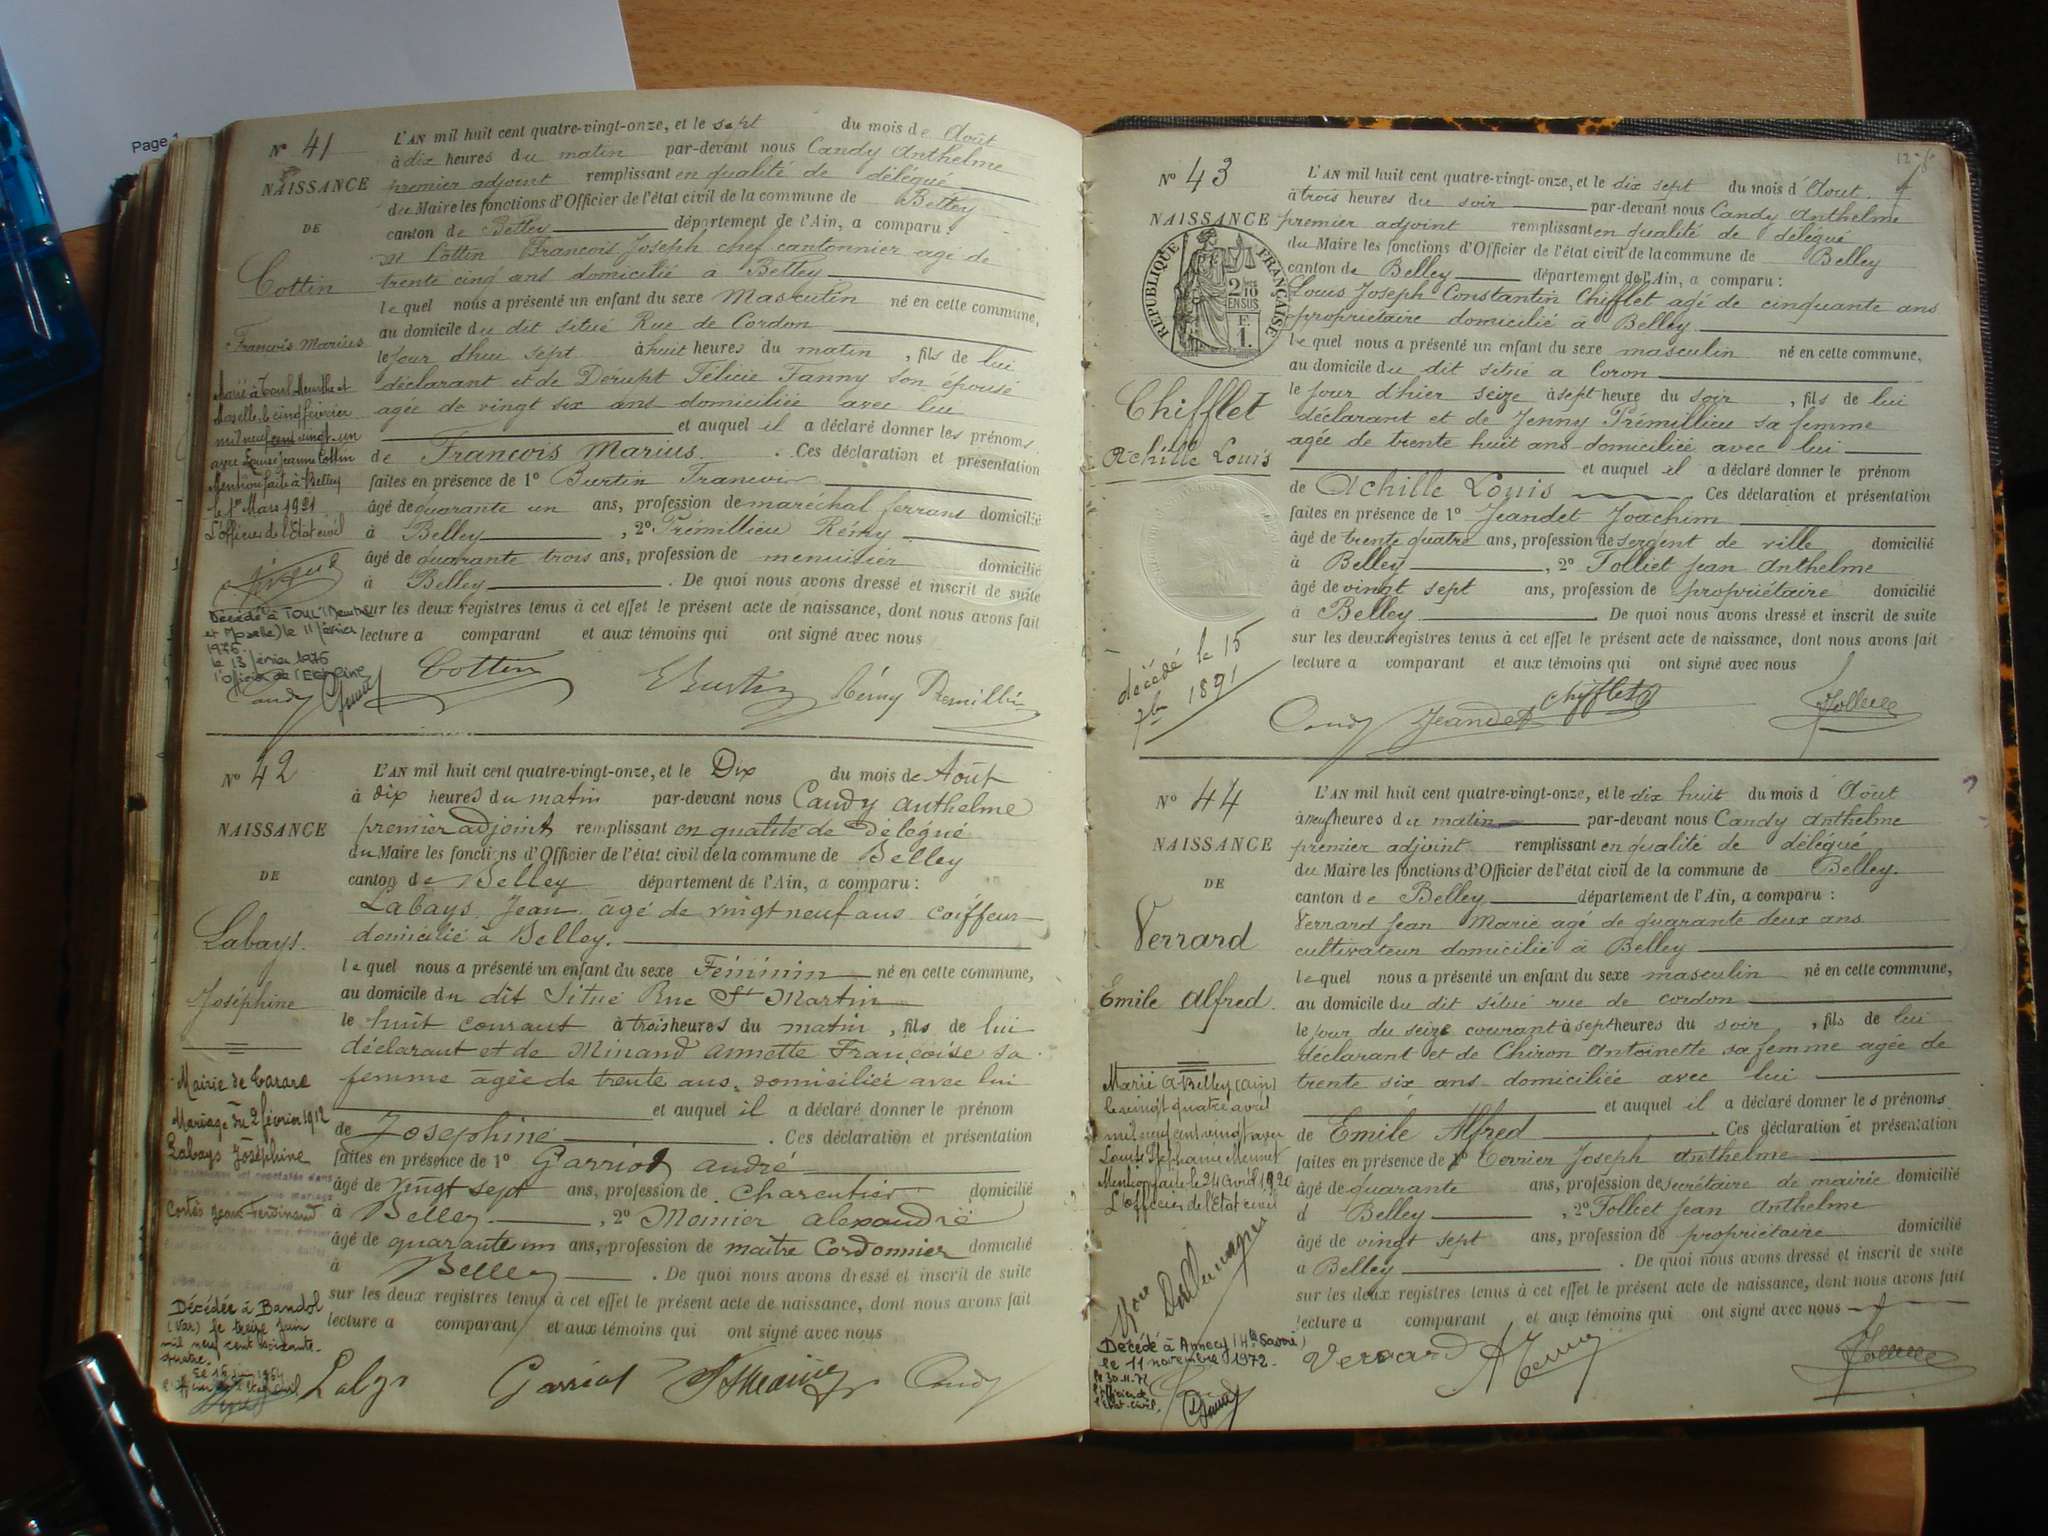 Page 1
N° 41
NAISSANCE
DE
Cottin
François Marius
Marié à Toul Meurthe et
Moselle, le cinq février
mil neuf cent vingt-un
avec Louise Jeanne Cottin
Mention faite à Belley
le 1er Mars 1921
L'officier de l'Etat civil
Décédé à TOUL (Meurthe
et Moselle) le 11 février
1976
le 13 février 1976
l'officier de l'Etat civil
L'AN mil huit cent quatre-vingt-onze, et le sept du mois de Août
à dix heures du matin par-devant nous Candy Anthelme
premier adjoint remplissant en qualité de délégué
du Maire les fonctions d'Officier de l'état civil de la commune de Belley
canton de Belley département de l'Ain, a comparu :
M Cottin François Joseph chef cantonnier agé de
trente cinq ans domicilié à Belley
lequel nous a présenté un enfant du sexe Masculin né en cette commune,
au domicile du dit situé Rue de Cordon
le jour d'hui sept à huit heures du matin, fils de lui
déclarant et de Dérupt Félicie Fanny son épouse
agée de vingt six ans domiciliée avec lui
et auquel il a déclaré donner les prénoms
de François Marius. Ces déclaration et présentation
faites en présence de 1° Burtin François
âgé de quarante un ans, profession de maréchal ferrant domicilié
à Belley, 2° Prémillieu Rémy
âgé de quarante trois ans, profession de menuisier domicilié
à Belley. De quoi nous avons dressé et inscrit de suite
sur les deux registres tenus à cet effet le présent acte de naissance, dont nous avons fait
lecture a comparant et aux témoins qui ont signé avec nous
Candy Cottin Burtin Rémy Premillieu
N° 42
NAISSANCE
DE
Labays.
Joséphine
Mairie de Tarare
Mariage du 2 février 1912
Labays Joséphine
Cortès Jean Ferdinand
Décédée à Bandol
(Var) le treize juin
mil neuf cent soixante-
quatre.
L'AN mil huit cent quatre-vingt-onze, et le Dix du mois de Août
à dix heures du matin par-devant nous Candy Anthelme
premier adjoint remplissant en qualité de Délégué
du Maire les fonctions d'Officier de l'état civil de la commune de Belley
canton de Belley département de l'Ain, a comparu :
Labays Jean âgé de vingt neuf ans coiffeur
domicilié à Belley.
lequel nous a présenté un enfant du sexe Féminin né en cette commune,
au domicile du dit Situé Rue St Martin
le huit courant à trois heures du matin, fils de lui
déclarant et de Minand Annette Françoise sa
femme âgée de trente ans, domiciliée avec lui
et auquel il a déclaré donner le prénom
de Josephine. Ces déclaration et présentation
faites en présence de 1° Garriot André
âgé de vingt sept ans, profession de Charcutier domicilié
à Belley, 2° Monier Alexandre
âgé de quarante un ans, profession de maître Cordonnier domicilié
à Belley. De quoi nous avons dressé et inscrit de suite
sur les deux registres tenus à cet effet le présent acte de naissance, dont nous avons fait
lecture a comparant et aux témoins qui ont signé avec nous
Garriot Candy
N° 43
NAISSANCE
RÉPUBLIQUE FRANÇAISE
2/10 EN SUS
F. 1.
Chifflet
Achille Louis
décédé le 15
7bre 1891
L'AN mil huit cent quatre-vingt-onze, et le dix sept du mois d'Aout
à trois heures du soir par-devant nous Candy Anthelme
premier adjoint remplissant en qualité de délégué
du Maire les fonctions d'Officier de l'état civil de la commune de Belley
canton de Belley département de l'Ain, a comparu :
Louis Joseph Constantin Chifflet agé de cinquante ans
propriétaire domicilié à Belley
lequel nous a présenté un enfant du sexe masculin né en cette commune,
au domicile du dit situé a Coron
le jour d'hier seize à sept heure du soir, fils de lui
déclarant et de Jenny Prémillieu sa femme
agée de trente huit ans domiciliée avec lui
et auquel il a déclaré donner le prénom
de Achille Louis. Ces déclaration et présentation
faites en présence de 1° Jeandet Joachim
âgé de trente quatre ans, profession de sergent de ville domicilié
à Belley, 2° Folliet Jean Anthelme
âgé de vingt sept ans, profession de propriétaire domicilié
à Belley. De quoi nous avons dressé et inscrit de suite
sur les deux registres tenus à cet effet le présent acte de naissance, dont nous avons fait
lecture a comparant et aux témoins qui ont signé avec nous
Candy Jeandet Chifflet
N° 44
NAISSANCE
DE
Verrard
Emile Alfred.
Marié à Belley (Ain)
le vingt quatre avril
mil neuf cent vingt avec
Louise Stéphanie
Mention faite le 24 Avril 1920
L'officier de l'Etat civil
Décédé à Annecy (Hte Savoie)
le 11 novembre 1972.
le 30.11.72
l'officier de
l'état-civil.
L'AN mil huit cent quatre-vingt-onze, et le dix huit du mois d Août
à neuf heures du matin par-devant nous Candy Anthelme
premier adjoint remplissant en qualité de délégué
du Maire les fonctions d'Officier de l'état civil de la commune de Belley.
canton de Belley département de l'Ain, a comparu :
Verrard Jean Marie agé de quarante deux ans
cultivateur domicilié à Belley
lequel nous a présenté un enfant du sexe masculin né en cette commune,
au domicile du dit situé rue de cordon
le jour du seize courant à sept heures du soir, fils de lui
déclarant et de Chiron Antoinette sa femme agée de
trente six ans domiciliée avec lui
et auquel il a déclaré donner les prénoms
de Emile Alfred. Ces déclaration et présentation
faites en présence de 1° Terrier Joseph Anthelme
âgé de quarante ans, profession de secrétaire de mairie domicilié
à Belley, 2° Folliet Jean Anthelme
âgé de vingt sept ans, profession de propriétaire domicilié
à Belley. De quoi nous avons dressé et inscrit de suite
sur les deux registres tenus à cet effet le présent acte de naissance, dont nous avons fait
lecture a comparant et aux témoins qui ont signé avec nous
Verrard